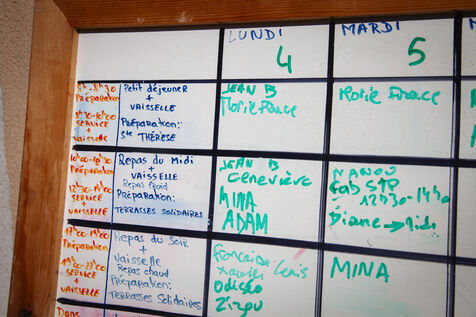 LUNDI
4
MARDI
5
8h-8h30
PRÉPARATION
SERVICE
+
VAISSELLE
Petit déjeuner
+
VAISSELLE
PRÉPARATION:
Ste THÉRÈSE
JEAN B
Marie France
Marie France
PRÉPARATION
SERVICE
+
VAISSELLE
Repas du Midi
+
VAISSELLE
Repas froid
PRÉPARATION:
TERRASSES SOLIDAIRES
JEAN B
Geneviève
MINA
ADAM
MANOU
12h30-14h30
Diane → Midi
PRÉPARATION
SERVICE
+
VAISSELLE
Repas du Soir
+
Vaisselle
Repas chaud
PRÉPARATION:
Terrasses Solidaires
Françoise
MINA
Dans